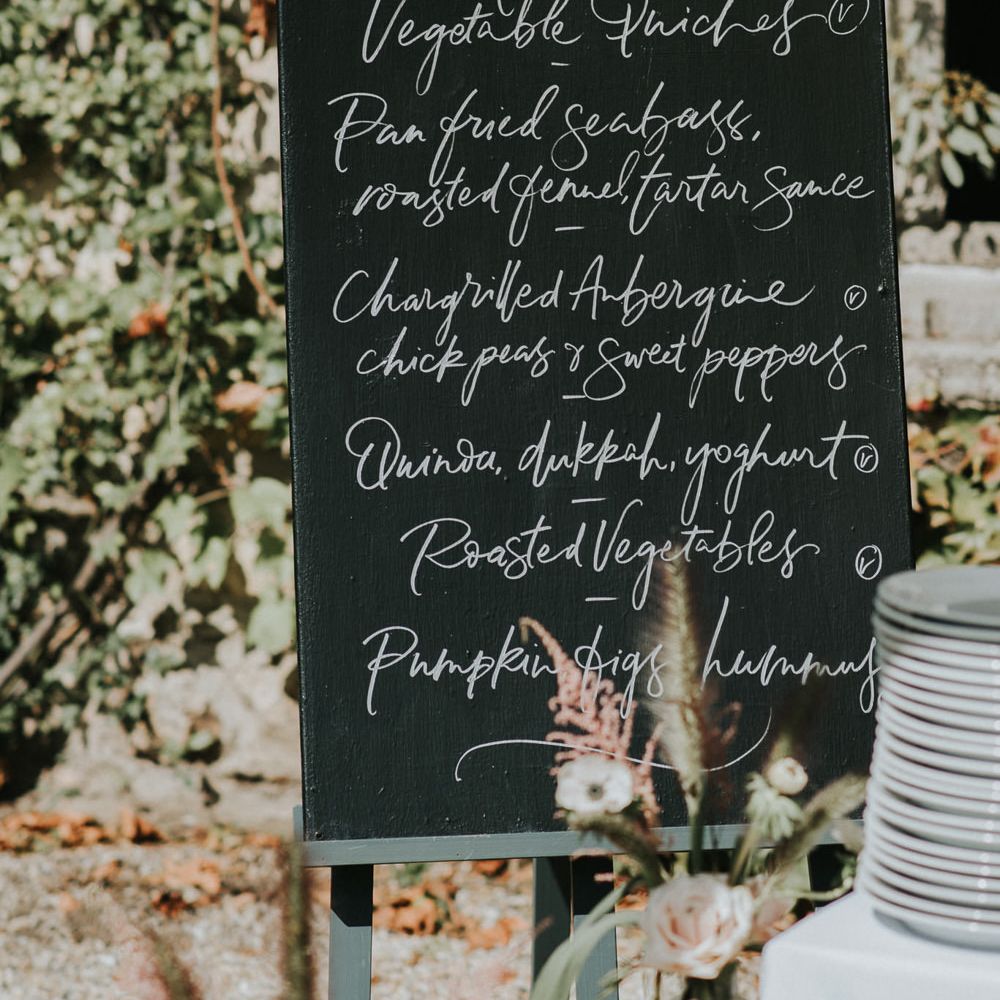 Vegetable Quiches (v)
Pan fried seabass,
roasted fennel, tartar sauce
Chargrilled Aubergine (v)
chick peas & sweet peppers
Quinoa, dukkah, yoghurt (v)
Roasted Vegetables (v)
Pumpkin figs hummus